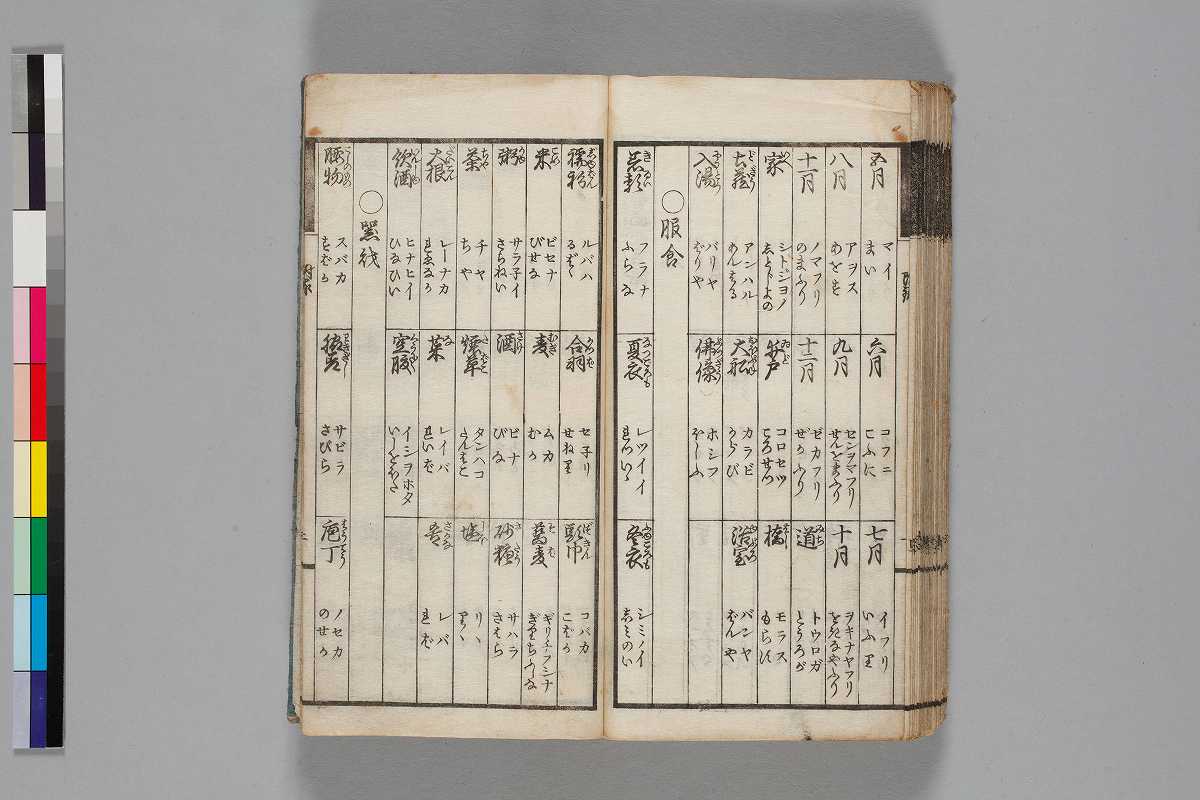 五月
マイ
まい
六月
コフニ
こふに
七月
イフリ
いふり
八月
アヲス
あをす
九月
センヲマフリ
せんをまふり
十月
ヲキナヤフリ
をきなやふり
十一月
ノマフリ
のまふり
十二月
ゼカフリ
ぜかふり
道 みち
トウロガ
とうろが
家
シトジヨノ
井戸 ゐど
コロセツ
ころせつ
橋 はし
モラス
もらす
土蔵
アンハル
あんはる
大船
カラビ
からび
浴室
バンヤ
ばんや
入湯
バリヤ
ばりや
佛像
ホシフ
ほしふ
○服食
フラナ
ふらな
夏衣 なつころも
レツイイ
れついゝ
冬衣 ふゆころも
シミノイ
しミのい
ルバハ
るばゝ
合羽 かつは
セ子リ
せねり
頭巾 づきん
コバカ
こばか
米 こめ
ビセナ
びせな
麦 むぎ
ムカ
むか
蕎麦 そば
ギリチフシナ
ぎりちふしな
粥 かゆ
サラ子イ
さらねい
酒 さけ
ビナ
びな
砂糖 さとう
サハラ
さはら
茶 ちや
チヤ
ちや
煙草
タンハコ
たんはこ
塩 しほ
リヽ
りゝ
大根
レーナカ
菜 な
レイバ
れいば
レバ
れば
飲酒
ヒナヒイ
ひなひい
空腹
イシヲホタ
いしをほた
○器機
腰物 こしのもの
スバカ
すばか
脇差 わきざし
サビラ
さびら
庖丁 はうてう
ノセカ
のせか